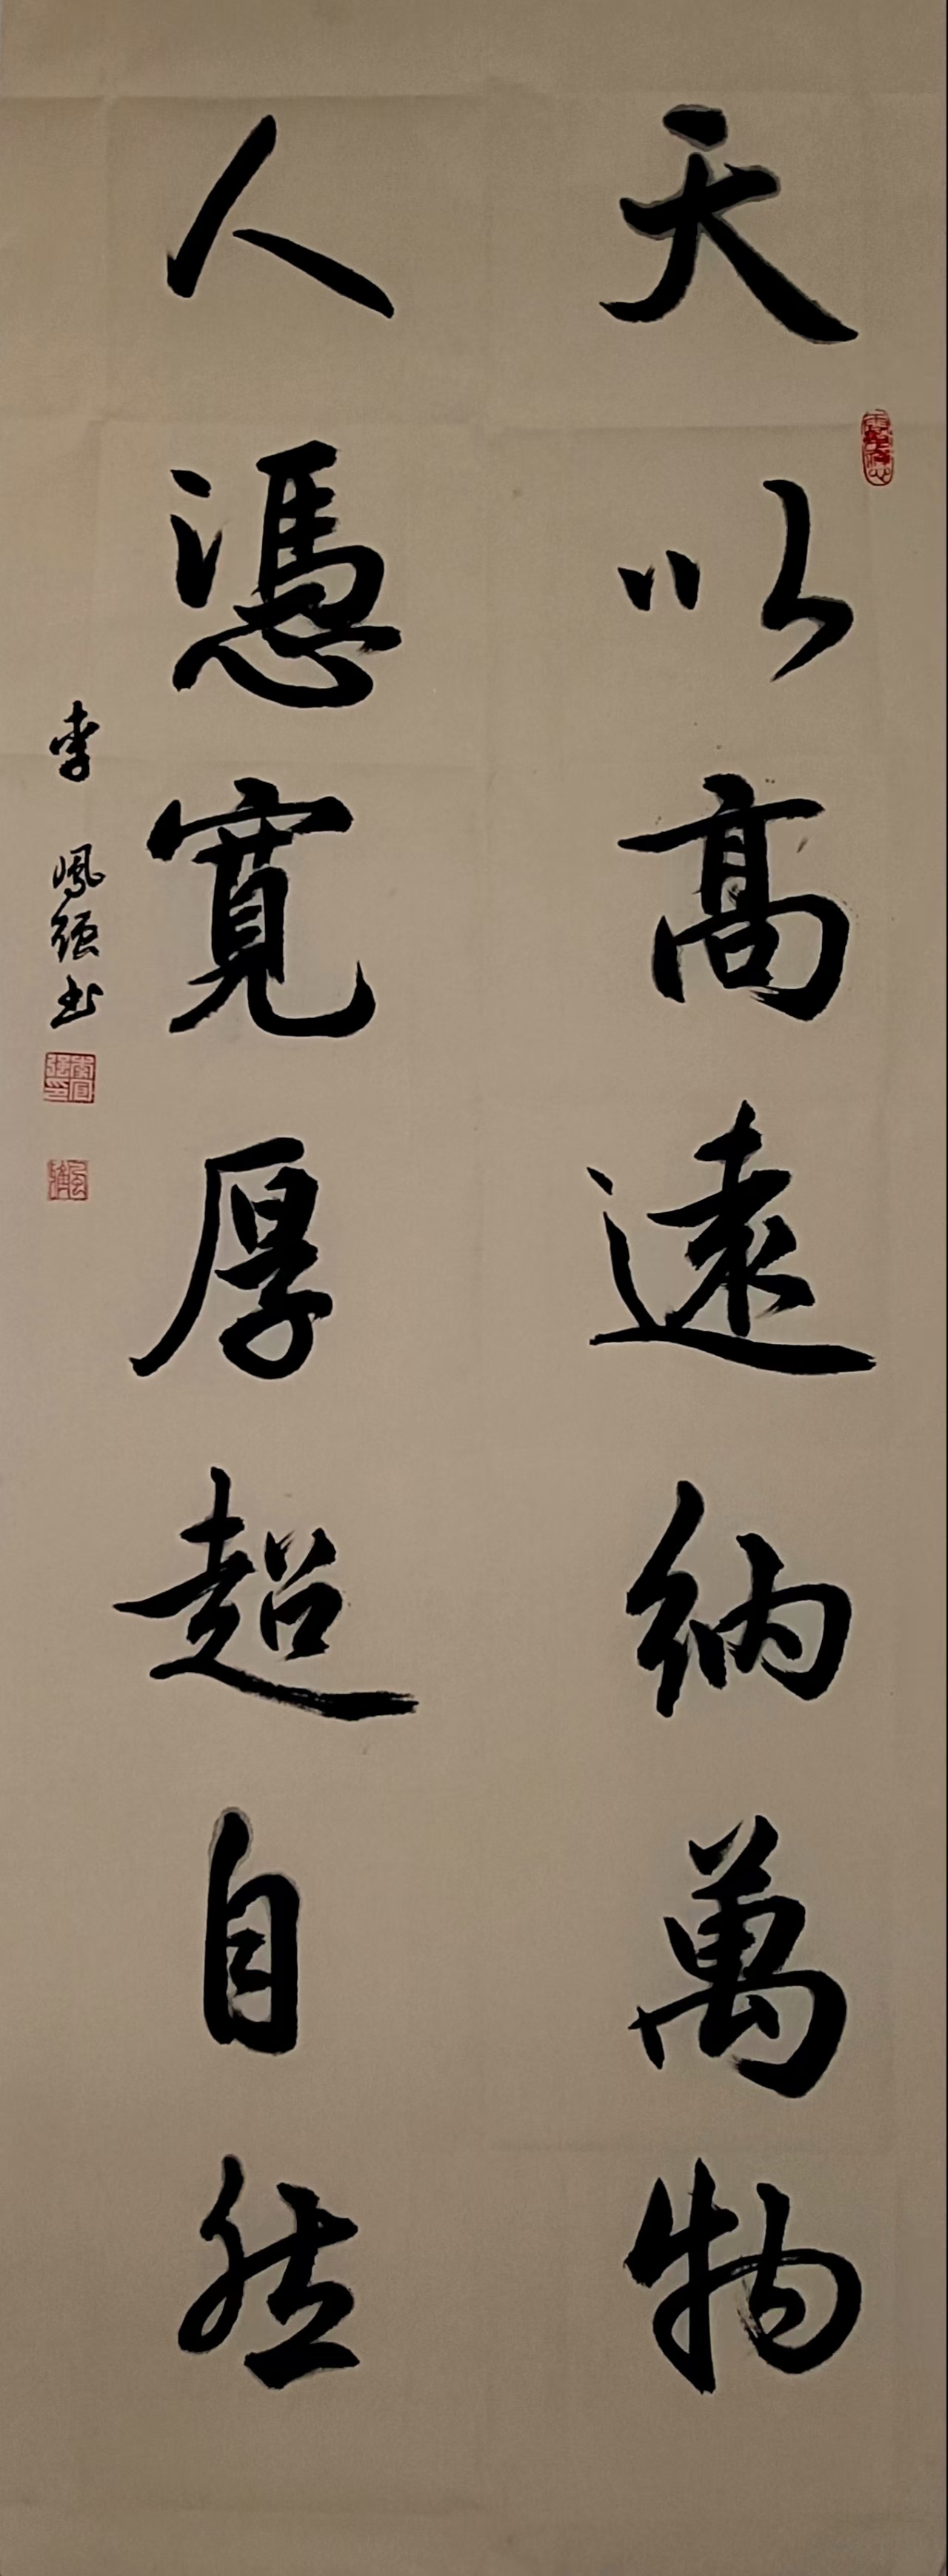 天以高遠納萬物
人憑寬厚超自然
李鳳強书